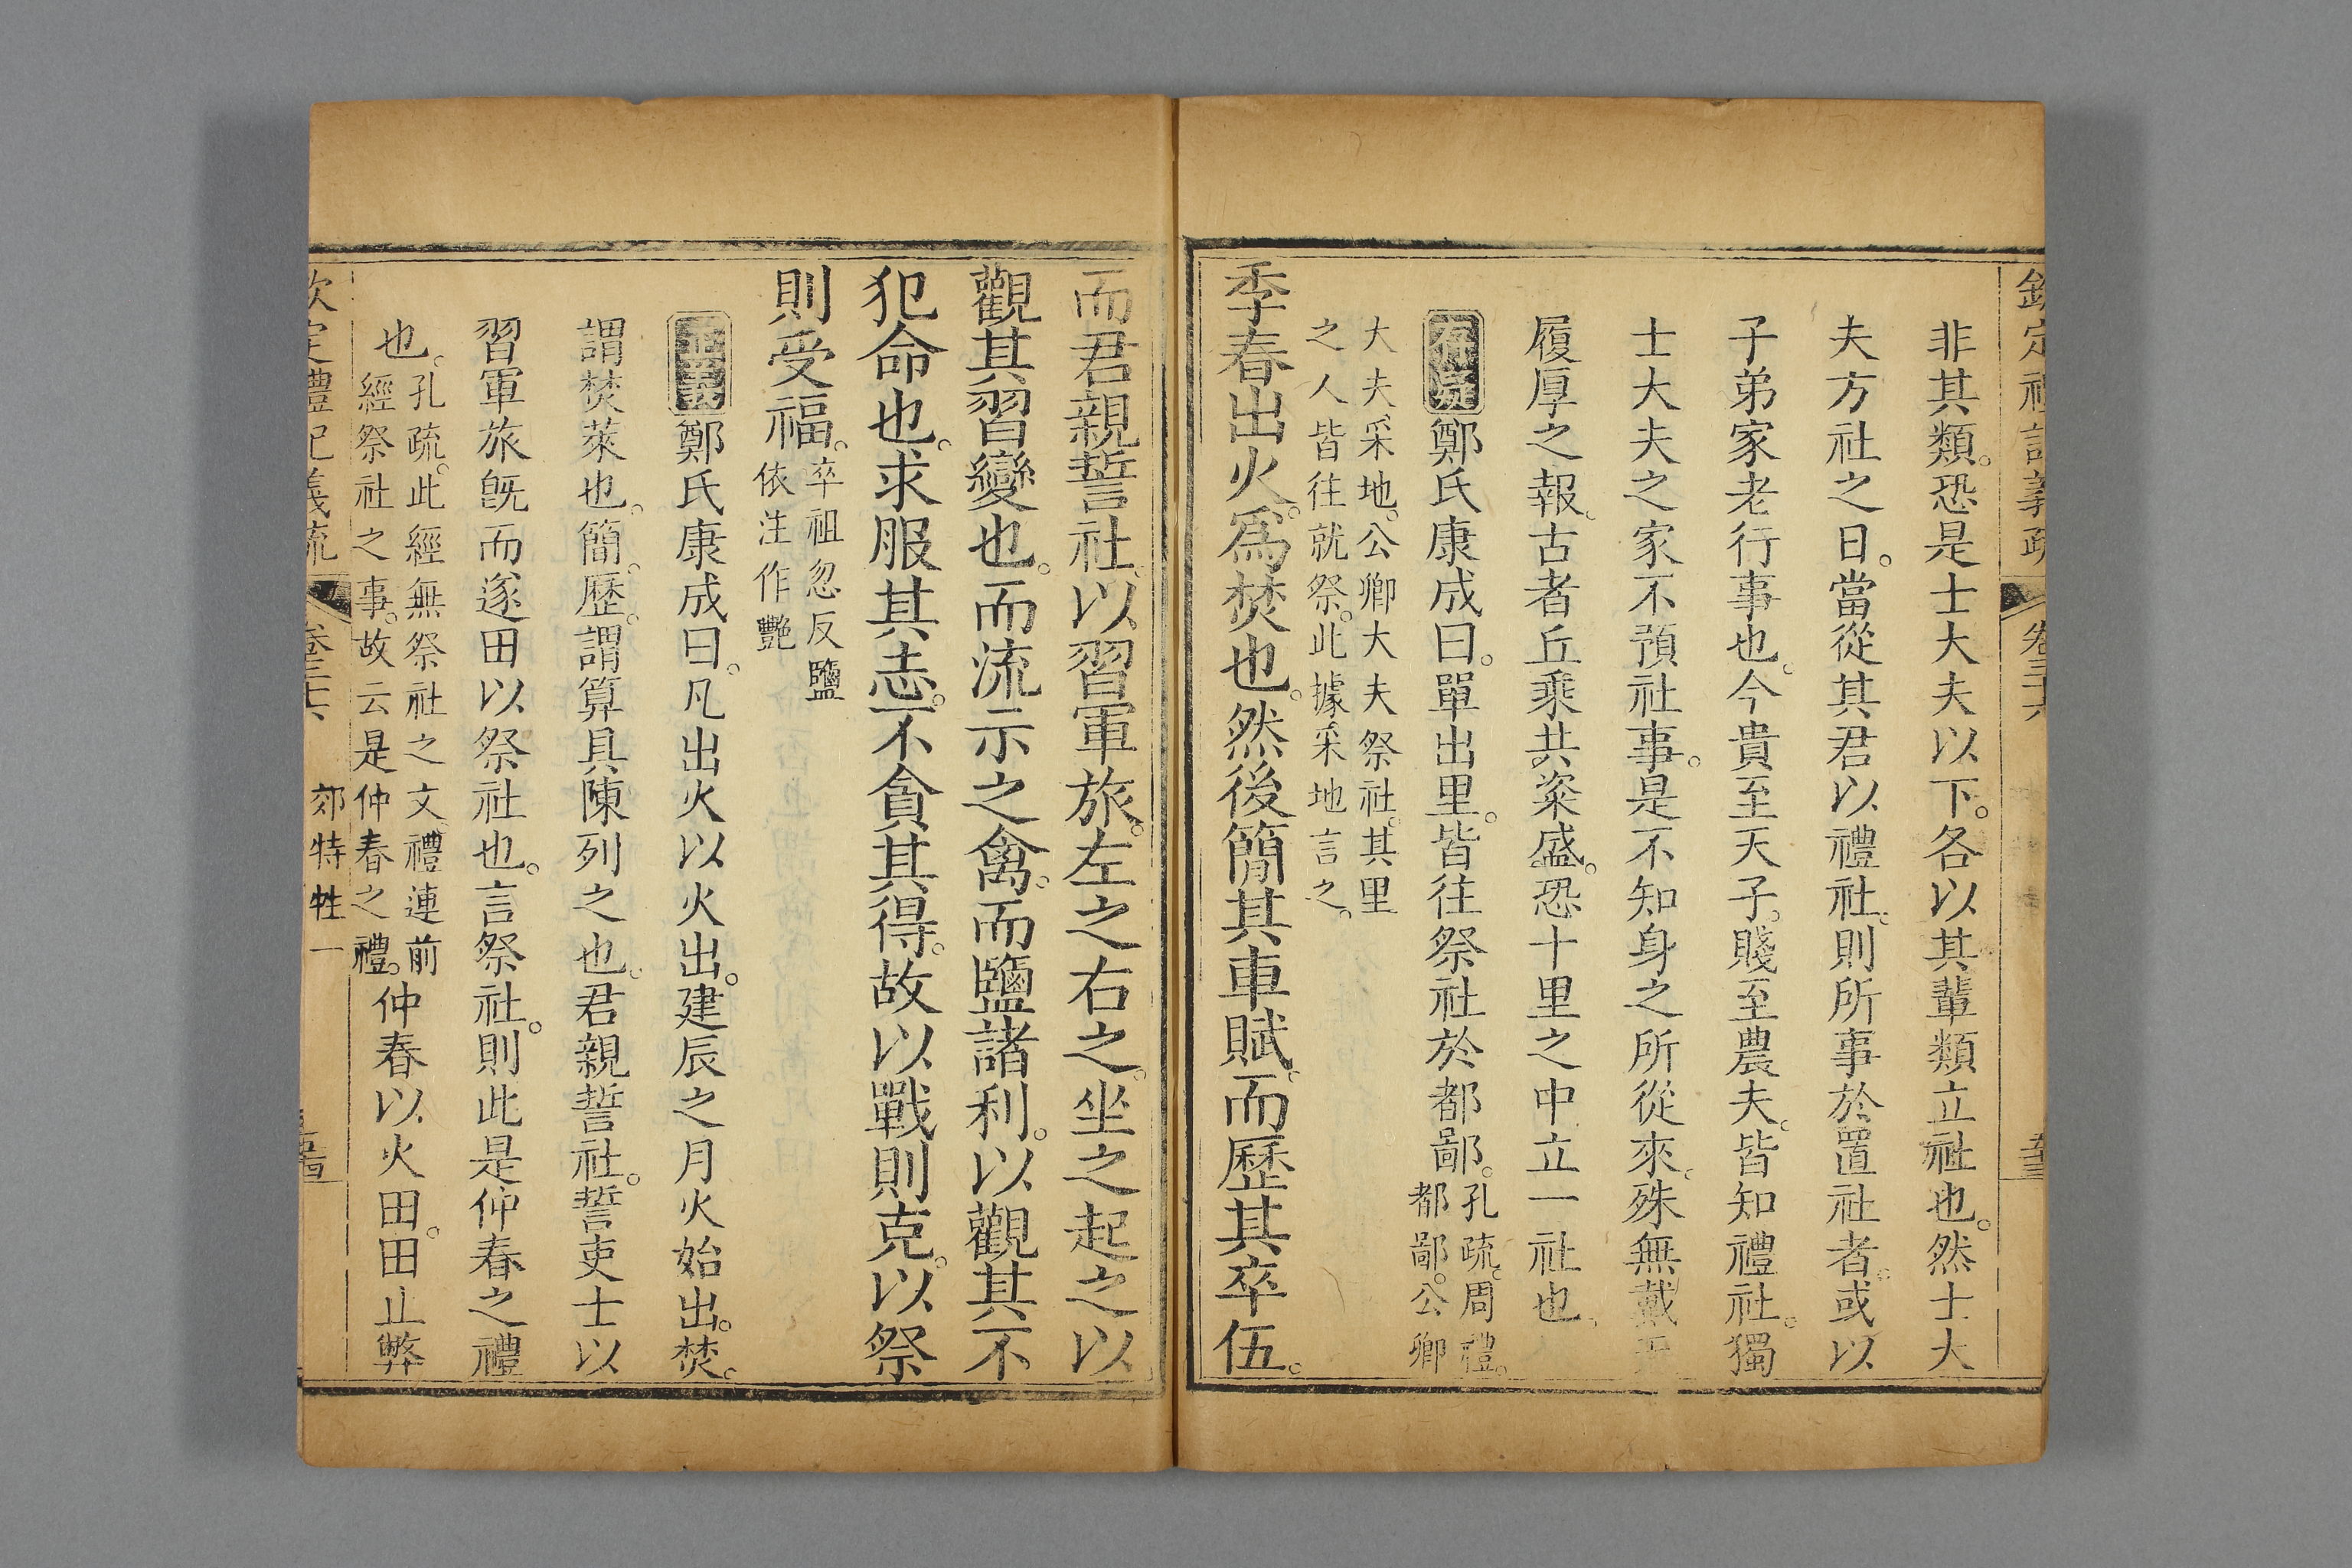 欽定禮記義疏 卷三十六
非其類。恐是士大夫以下。各以其輩類立社也。然士大
夫方社之日。當從其君以禮社。則所事於置社者。或以
子弟家老行事也。今貴至天子。賤至農夫。皆知禮社。獨
士大夫之家不預社事。是不知身之所從來。殊無戴
履厚之報。古者丘乘共粢盛。恐十里之中立一社也。
存疑鄭氏康成曰。單出里。皆往祭社於都鄙。孔疏。周禮。
都鄙。公卿
大夫采地。公卿大夫祭社。其里
之人皆往就祭。此據采地言之。
季春出火。爲焚也。然後簡其車賦。而歷其卒伍。
而君親誓社。以習軍旅。左之右之。坐之起之。以
觀其習變也。而流示之禽。而鹽諸利。以觀其不
犯命也。求服其志。不貪其得。故以戰則克。以祭
則受福。卒祖忽反鹽
依注作艷
正義鄭氏康成曰。凡出火以火出。建辰之月火始出。焚。
謂焚萊也。簡。歷。謂算具陳列之也。君親誓社。誓吏士以
習軍旅旣而遂田以祭社也。言祭社。則此是仲春之禮
也。孔疏。此經無祭社之文。禮連前
經祭社之事。故云是仲春之禮。仲春以火田。田止弊
欽定禮記義疏 卷三十六 郊特牲一